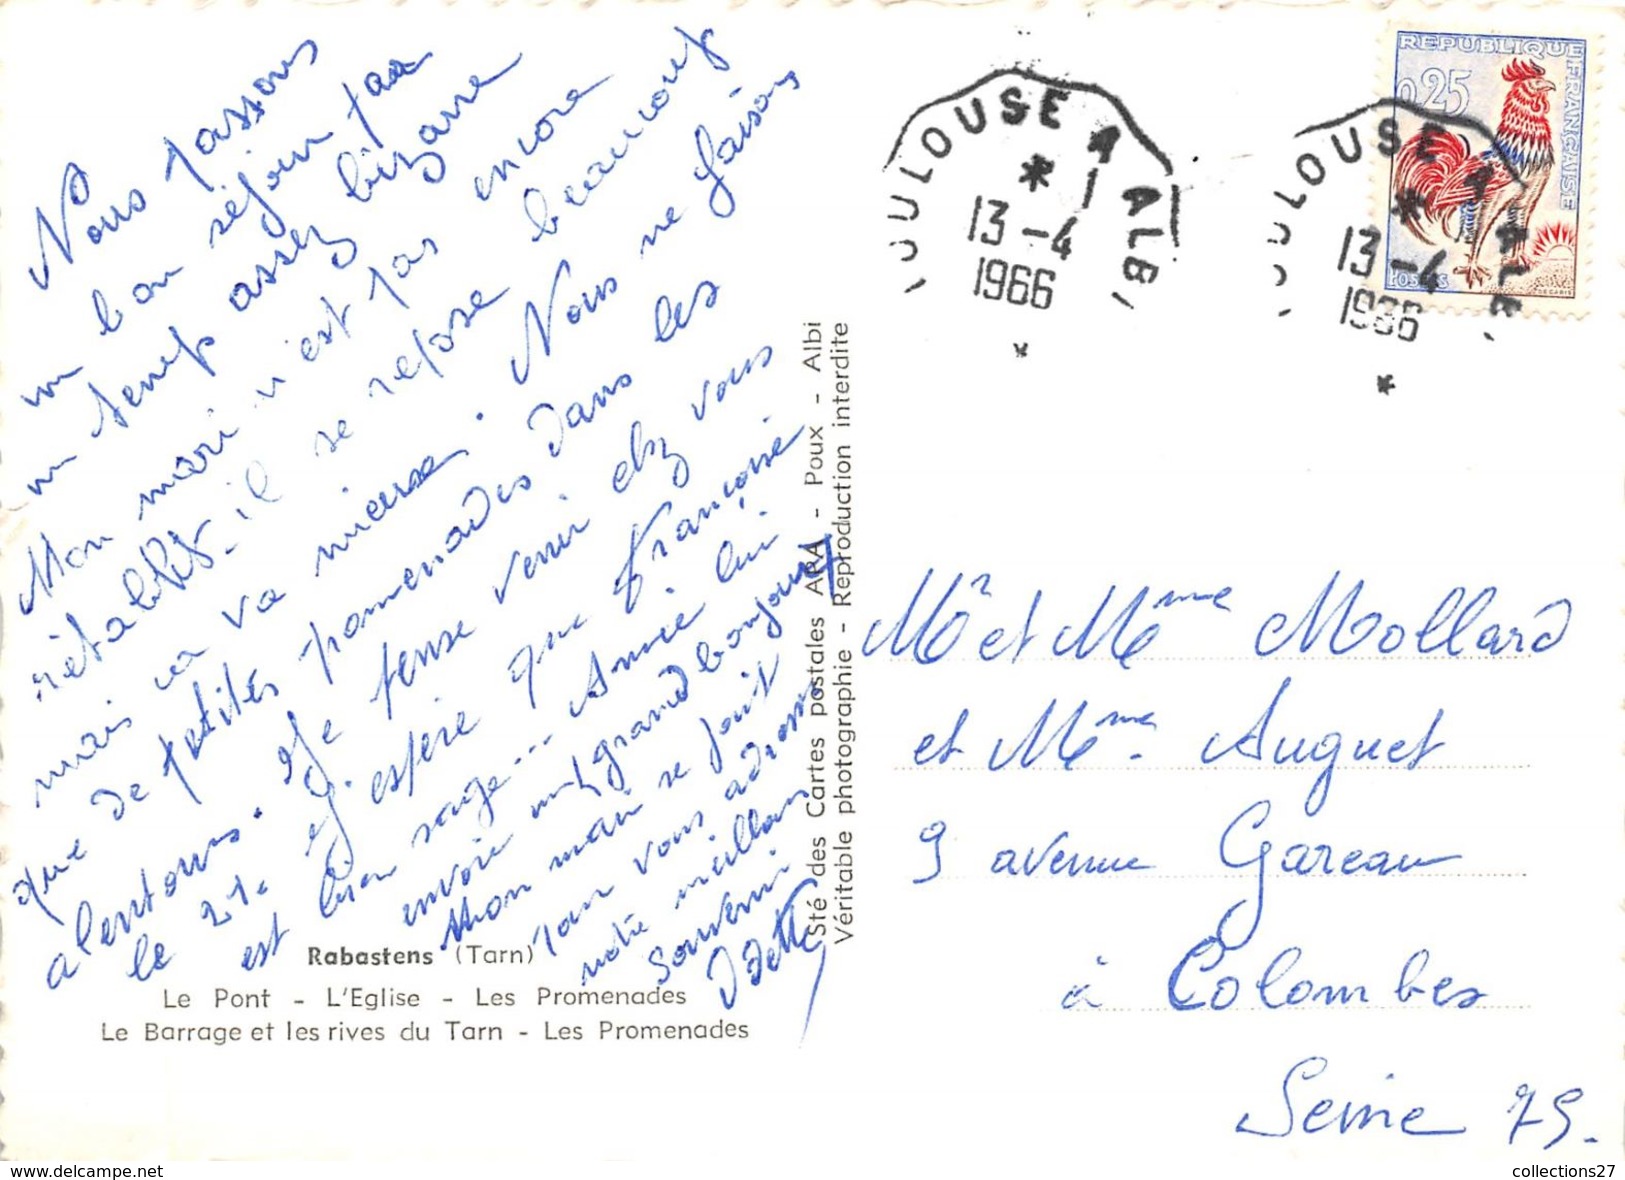 Nous passons
un bon séjour par
un temps assez bizarre
Mon mari n'est pas encore
rétabli, il se repose beaucoup
mais ça va mieux. Nous ne faisons
que de petites promenades dans les
alentours. Je pense venir chez vous
le 21. J'espère que Françoise
est bien sage... Annie lui
envoie un grand bonjour
Mon mari se joint
pour vous adresser
notre meilleur
souvenir
Odette
Rabastens (Tarn)
Le Pont - L'Eglise - Les Promenades
Le Barrage et les rives du Tarn - Les Promenades
Sté des Cartes postales APA - Poux - Albi
Véritable photographie - Reproduction interdite
TOULOUSE A ALBI
13-4
1966
TOULOUSE A ALBI
13-4
1966
REPUBLIQUE FRANÇAISE
0,25
POSTES
DECARIS
Mr et Mme Mollard
et Mme Auguet
9 avenue Gareau
à Colombes
Seine 75.
www.delcampe.net
collections27